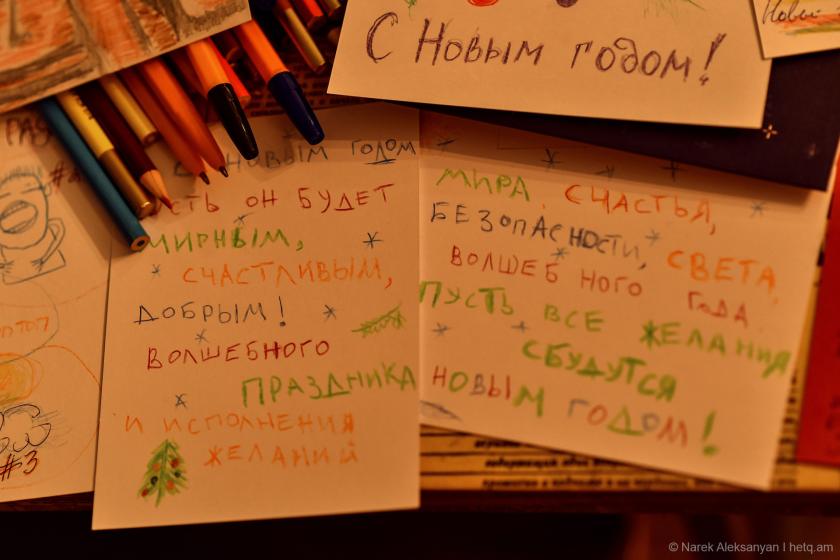 С Новым годом!
Новы
РАЗ
С НОВЫМ ГОДОМ
СТЬ ОН БУДЕТ
МИРНЫМ,
СЧАСТЛИВЫМ,
ДОБРЫМ!
ВОЛШЕБНОГО
ПРАЗДНИКА
И ИСПОЛНЕНИЯ
ЖЕЛАНИЙ
МИРА, СЧАСТЬЯ,
БЕЗОПАСНОСТИ, СВЕТА,
ВОЛШЕБНОГО ГОДА.
ПУСТЬ ВСЕ ЖЕЛАНИЯ
СБУДУТСЯ
НОВЫМ ГОДОМ!
#3
© Narek Aleksanyan I hetq.am